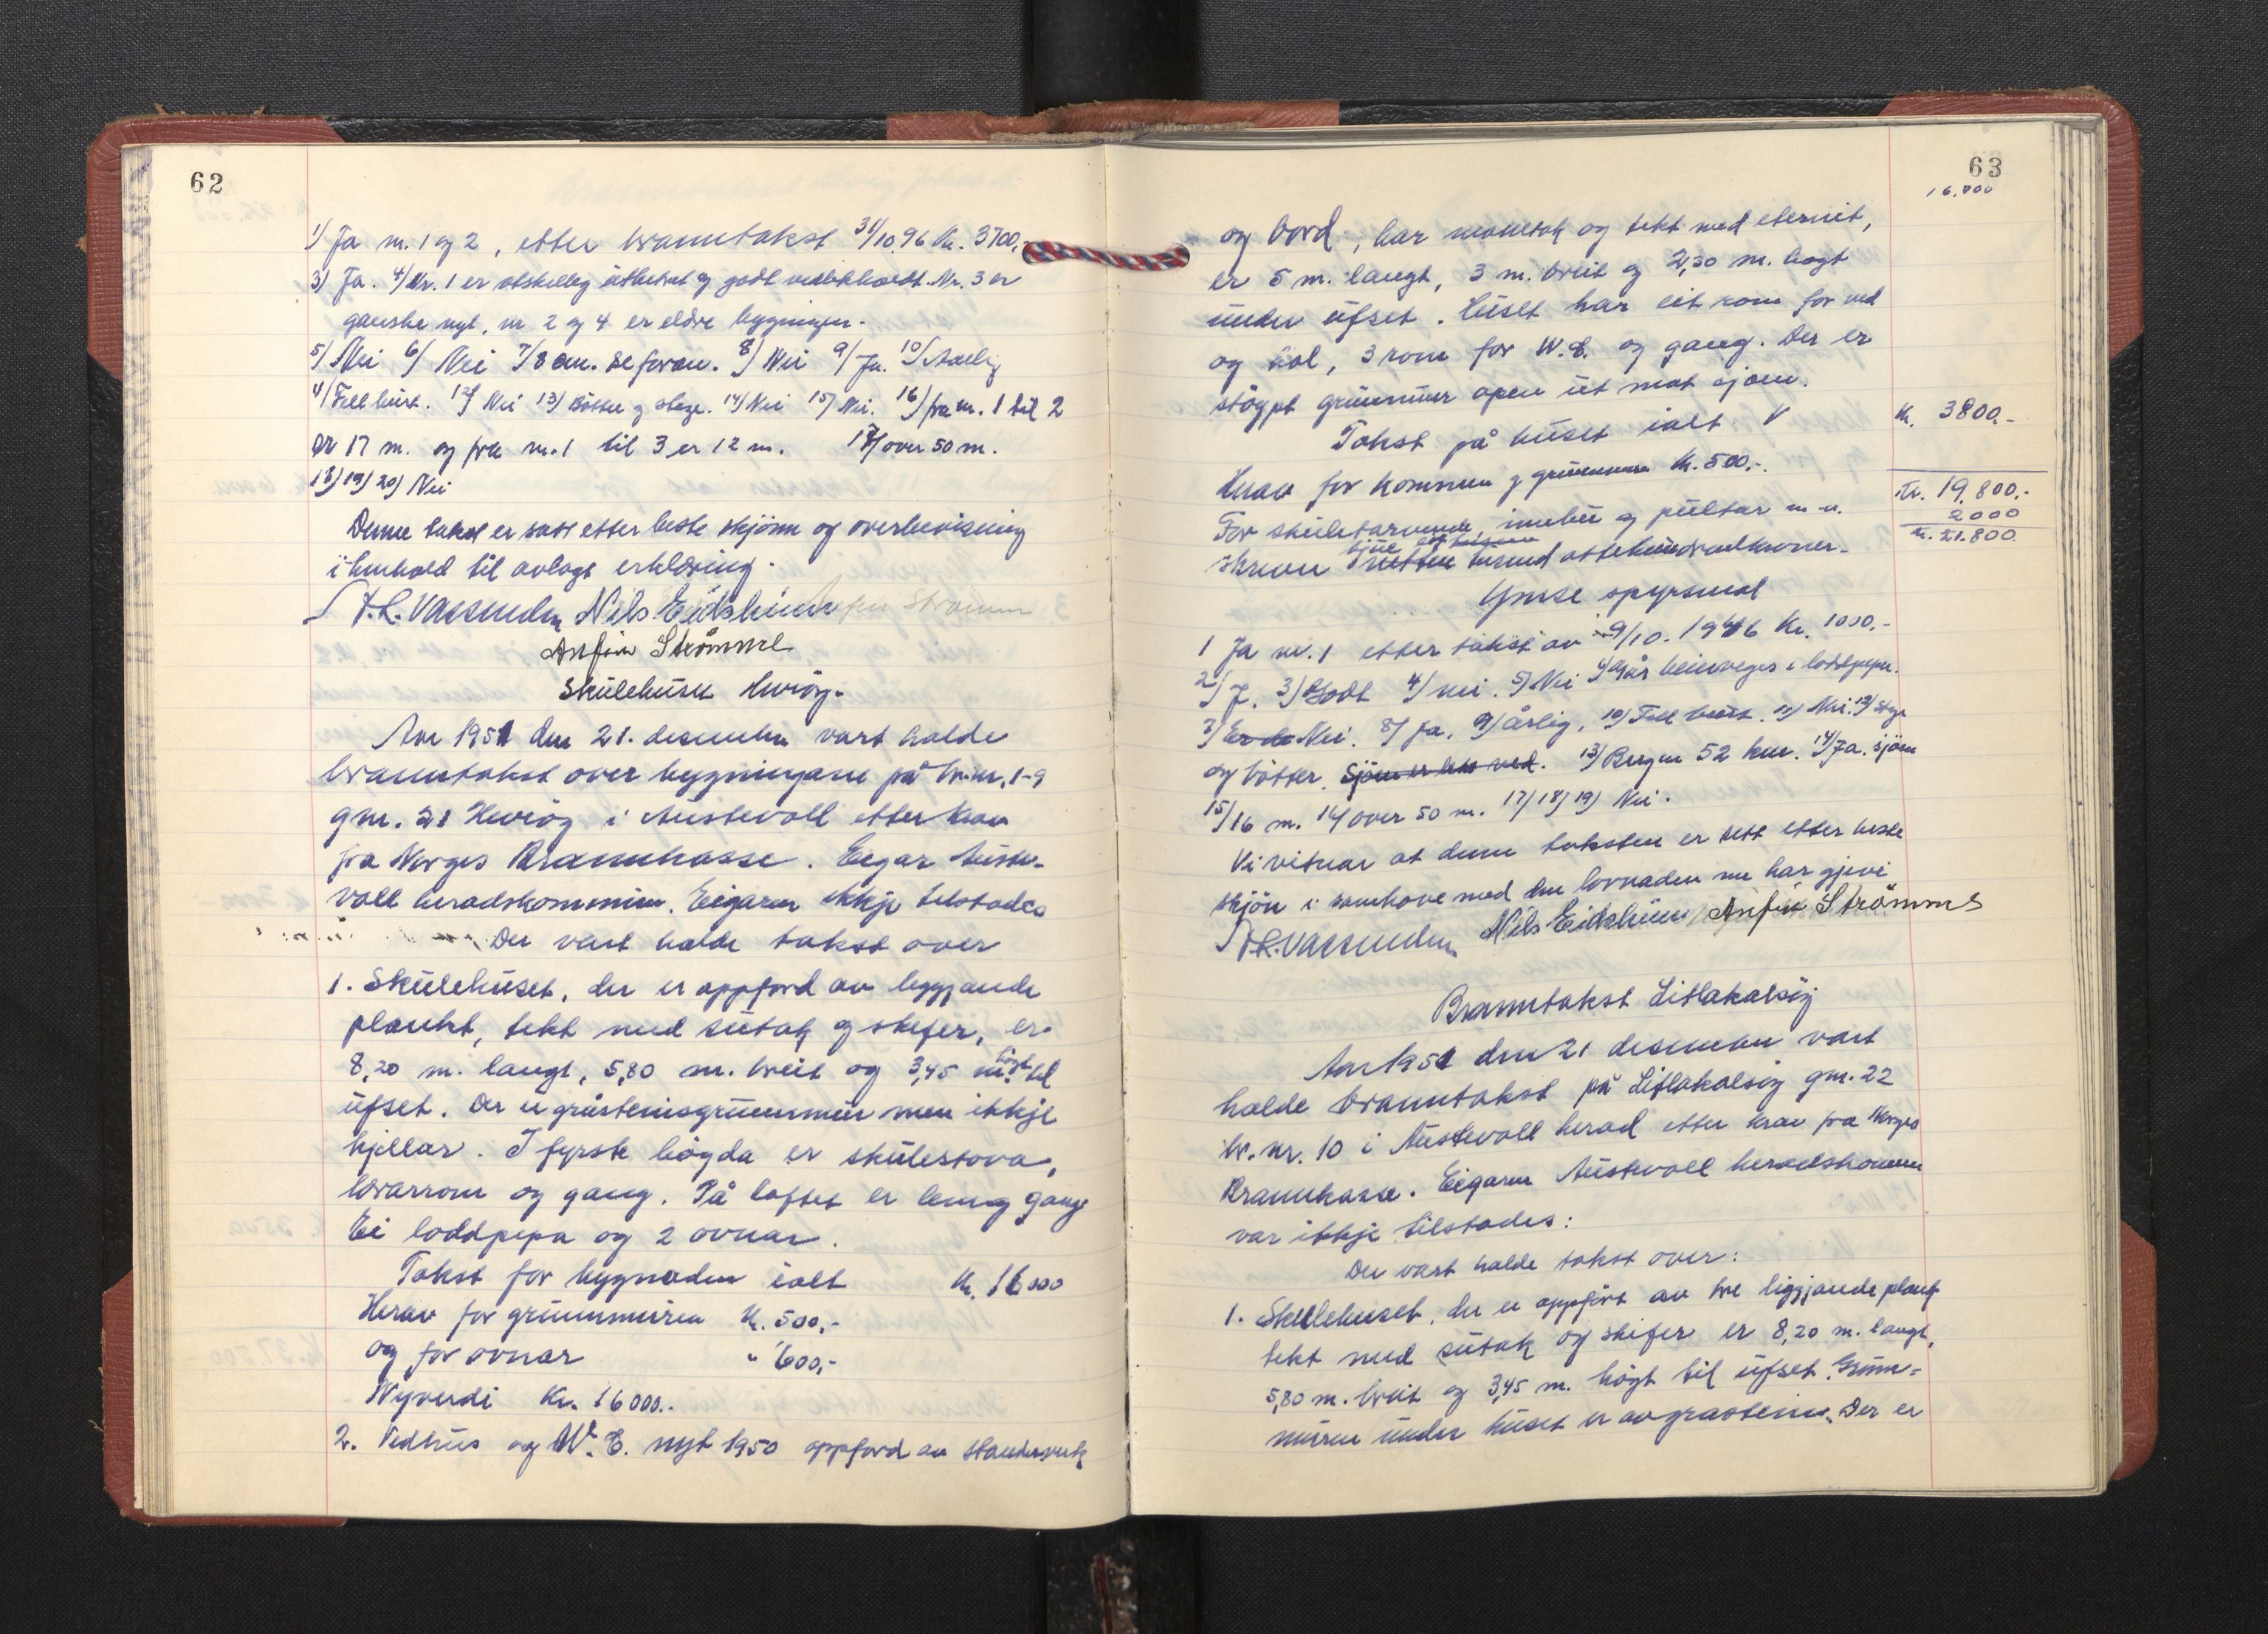 62
1) Ja nr. 1 og 2, etter branntakst 31/10.96 Kr. 3700,-
3) Ja. 4) Nr. 1 er utbetra og godt vedlikehaldt. Nr. 3 er
ganske nyt, nr 2 og 4 er eldre bygningar.
5) Nei 6) Nei 7) 8 cm. Se foran. 8) Nei 9) Ja. 10) Aarlig
11) Fell burt. 12) Nei 13) Bøtter og stege. 14) Nei 15) Nei. 16) fra nr. 1 til 2
er 17 m. og fra nr. 1 til 3 er 12 m. 17) over 50 m.
18) 19) 20) Nei
Denne takst er satt etter beste skjønn og overbevisning
i henhold til avlagt erklæring.
Nils Eidshaun
Anfin Strømme
Skulehuset Hevrøy.
Aar 1951 den 21. desember vart halde
branntakst over bygningane på br.nr. 1-9
gnr. 21 Hevrøy i Austevoll etter krav
fra Norges Brannkasse. Eigar Auste-
voll heradskommune. Eigaren ikkje tilstades
Der vart halde takst over
1. Skulehuset, der er oppførd av liggjande
plankt, tekt med sutak og skifer, er
8,20 m. langt, 5,80 m. breit og 3,45 m. høgt til
ufset. Der er gråsteinsgrunnmur men ikkje
kjellar. I fyrste høgda er skulestova,
lærarrom og gang. På loftet er lem og gang
Ei loddpipa og 2 ovnar.
Takst for bygnaden ialt Kr. 16000
Herav for grunnmuren Kr. 500,-
og for ovnar " 600,-
Nyverdi Kr. 16000.-
2. Vedhus og W.C. nyt 1950 oppførd av standarverk
63
16.000
og bord, har monetak og tekt med eternit,
er 5 m. langt, 3 m. breit og 2,30 m. høgt
under ufset. Huset har eit rom for ved
og kol, 3 rom for W.C. og gang. Der er
støypt grunnmur open ut mot sjøen.
Takst på huset ialt Kr. 3800.-
Herav for kommen og grunnmur Kr. 500.-
Kr. 19.800.-
For skuletarvende, inventar og pultar m.v. 2000
Kr. 21.800
skriver tjue ein tusund nitten tusund ottehundradkroner.
Ymse spyrsmal
1 Ja nr. 1 etter takst av 9/10. 1946 Kr. 1000.-
2) J. 3) Godt 4) nei. 5) Nei 6) Går beinveges i loddpipa.
7) Er de Nei. 8) Ja, 9) årlig, 10) Fell burt. 11) Nei. 12) Stige
og bøtter. Sjøen er like ved. 13) Bergen 52 km. 14) Ja. sjøen
15) 16 m. 16) over 50 m. 17) 18) 19) Nei.
Vi vitnar at denne taksten er sett etter beste
skjøn i samhøve med den lovnaden me har gjevi
Nils Eidshaun Anfin Strømme
Branntakst Litlakalsøy
Aar 1951 den 21 desember vart
halde branntakst på Litlakalsøy gnr. 22
br.nr. 10 i Austevoll herad etter krav fra Norges
Brannkasse. Eigaren Austevoll heradskommune
var ikkje tilstades:
Der vart halde takst over:
1. Skulehuset, der er oppført av tre liggjande plank
tekt med sutak og skifer er 8,20 m. langt,
5,80 m. breit og 3,45 m. høgt til ufset. Grunn-
muren under huset er av gråstein. Der er